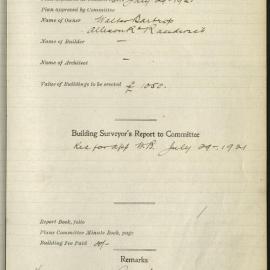 July 29-1921
Plan approved by Committee
Name of Owner Walter Bartrop
Allison Rd Randwick
Name of Builder —
Name of Architect —
Value of Buildings to be erected £ 1050.
Building Surveyor's Report to Committee
Rec for app W.B. July 29-1921
Report Book, folio
Plans Committee Minute Book, page
Building Fee Paid
Remarks